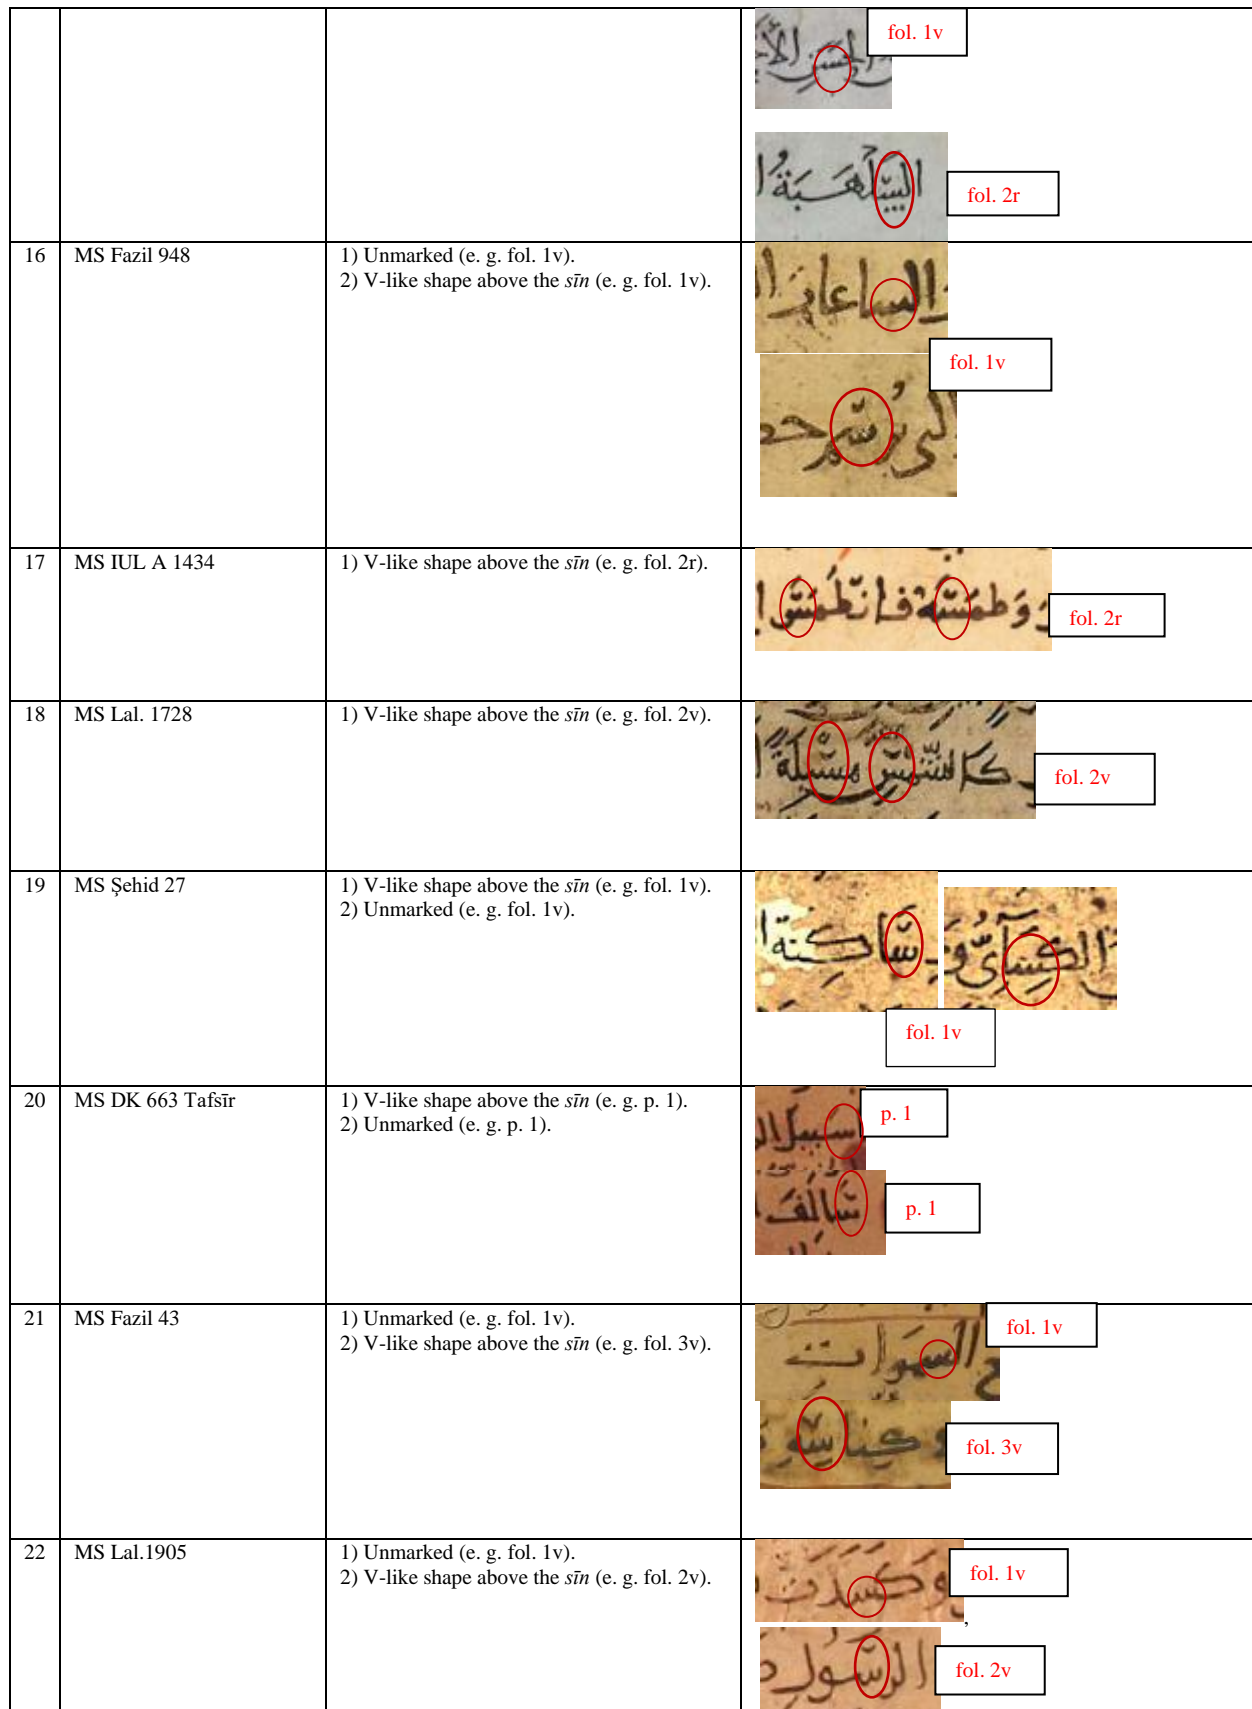 fol. 1v
fol. 2r
16 MS Fazil 948 1) Unmarked (e. g. fol. 1v).
2) V-like shape above the sīn (e. g. fol. 1v).
الساعات
fol. 1v
17 MS IUL A 1434 1) V-like shape above the sīn (e. g. fol. 2r).
وَطمَسَهُ فانطَمَسَ
fol. 2r
18 MS Lal. 1728 1) V-like shape above the sīn (e. g. fol. 2v).
fol. 2v
19 MS Şehid 27 1) V-like shape above the sīn (e. g. fol. 1v).
2) Unmarked (e. g. fol. 1v).
fol. 1v
20 MS DK 663 Tafsīr 1) V-like shape above the sīn (e. g. p. 1).
2) Unmarked (e. g. p. 1).
p. 1
p. 1
21 MS Fazil 43 1) Unmarked (e. g. fol. 1v).
2) V-like shape above the sīn (e. g. fol. 3v).
السموات
fol. 1v
fol. 3v
22 MS Lal.1905 1) Unmarked (e. g. fol. 1v).
2) V-like shape above the sīn (e. g. fol. 2v).
fol. 1v
,
الرسول
fol. 2v